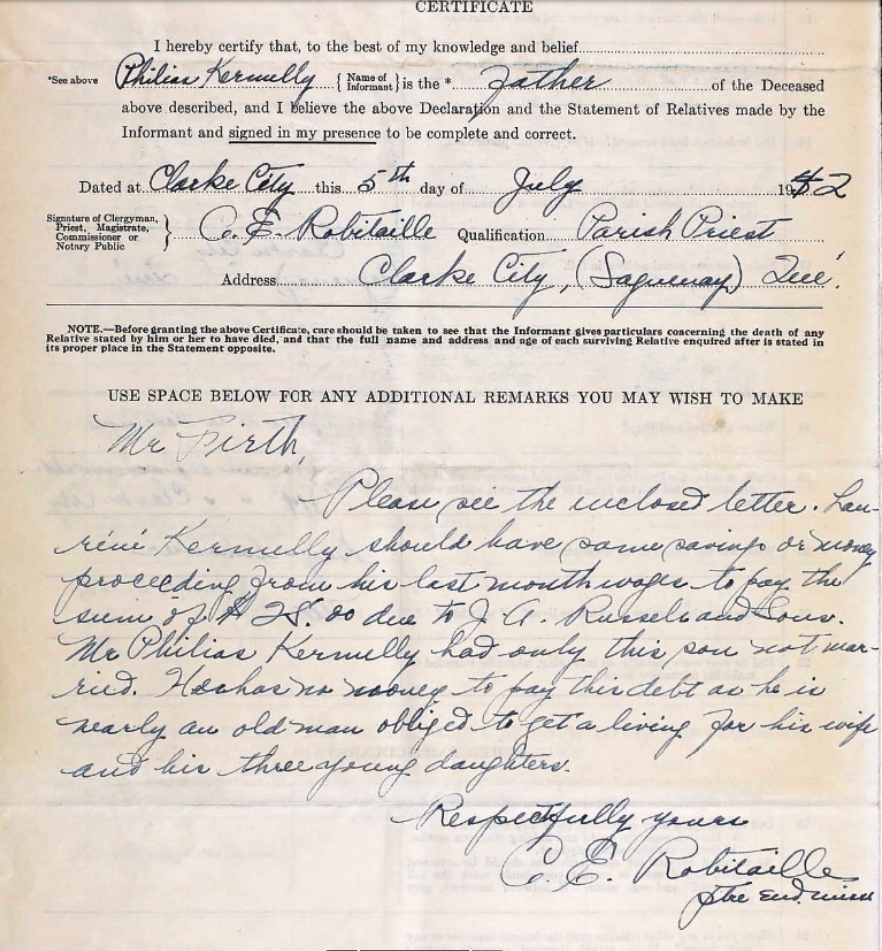 CERTIFICATE
I hereby certify that, to the best of my knowledge and belief
*See above Philias Kermelly { Name of Informant } is the * Father of the Deceased
above described, and I believe the above Declaration and the Statement of Relatives made by the
Informant and signed in my presence to be complete and correct.
Dated at Clarke City this 5th day of July 1942
Signature of Clergyman, Priest, Magistrate, Commissioner or Notary Public } C. E. Robitaille Qualification Parish Priest
Address Clarke City, (Saguenay) Qué.
NOTE.—Before granting the above Certificate, care should be taken to see that the Informant gives particulars concerning the death of any
Relative stated by him or her to have died, and that the full name and address and age of each surviving Relative enquired after is stated in
its proper place in the Statement opposite.
USE SPACE BELOW FOR ANY ADDITIONAL REMARKS YOU MAY WISH TO MAKE
Mr Firth,
Please see the inclosed letter. Lau-
réné Kermelly should have some savings or money
proceeding from his last month wages to pay the
sum of $ 28.00 due to J. A. Russel and Sons.
Mr Philias Kermelly had only this son not mar-
ried. He has no money to pay this debt as he is
nearly an old man obliged to get a living for his wife
and his three young daughters.
Respectfully yours
C. E. Robitaille